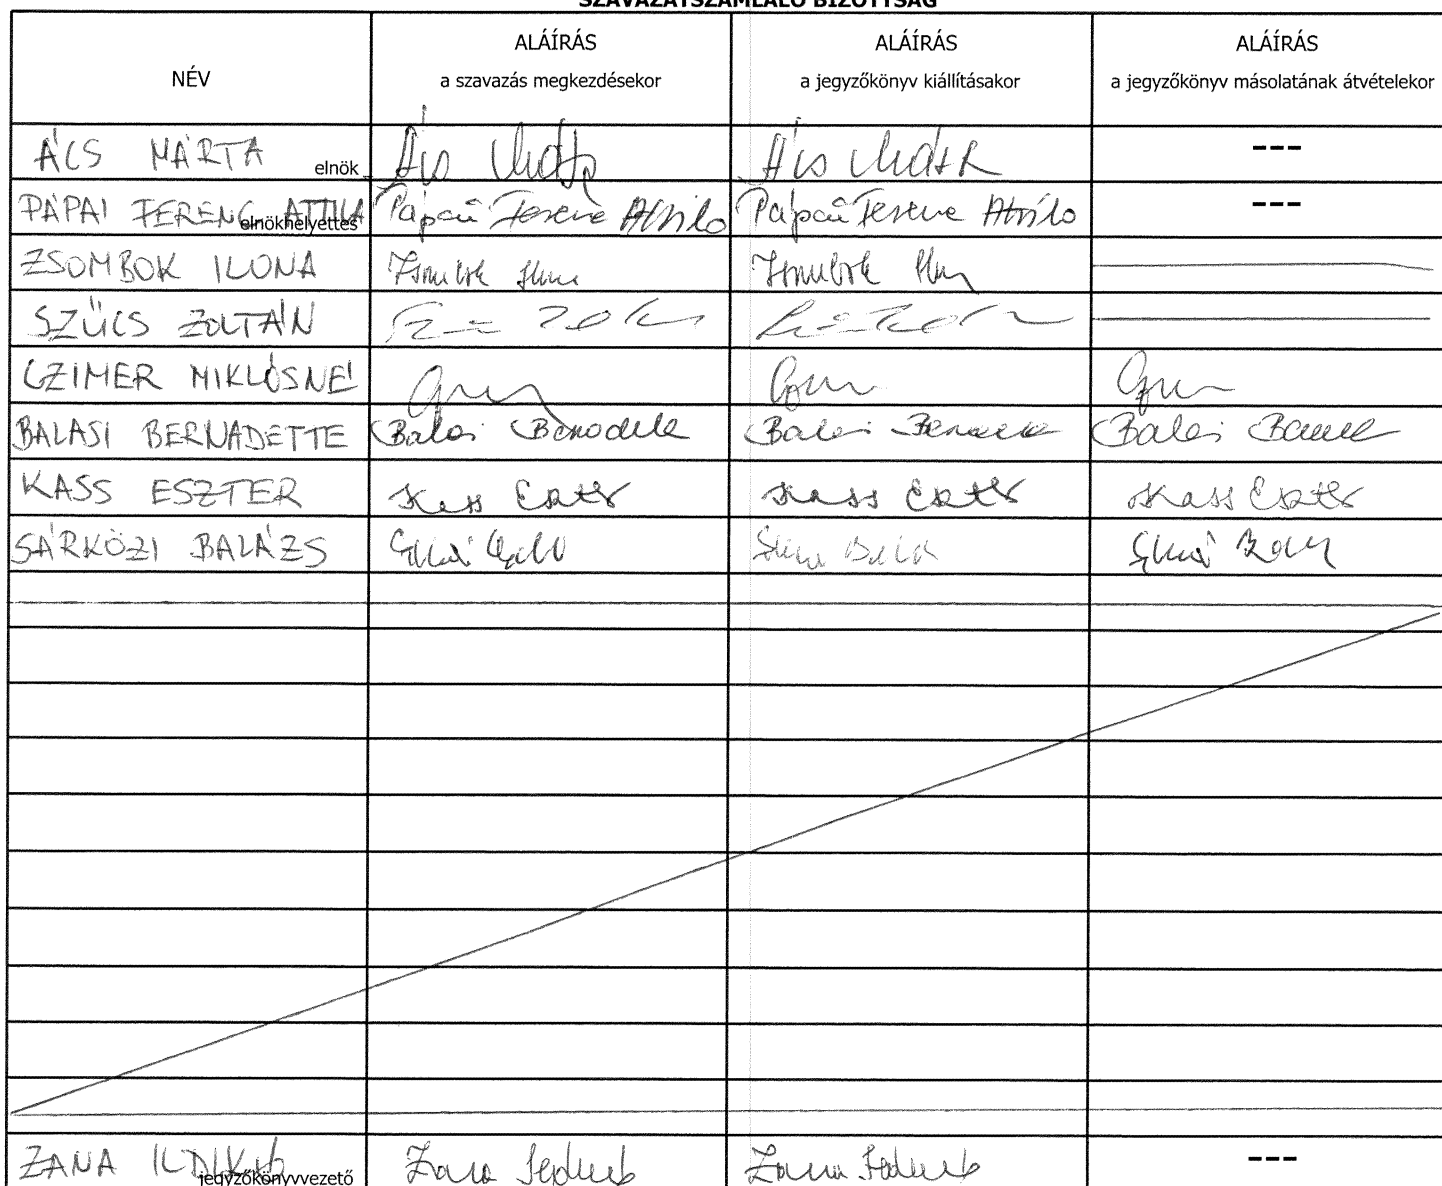 SZAVAZATSZÁMLÁLÓ BIZOTTSÁG
NÉV
ALÁÍRÁS
a szavazás megkezdésekor
ALÁÍRÁS
a jegyzőkönyv kiállításakor
ALÁÍRÁS
a jegyzőkönyv másolatának átvételekor
ÁCS MÁRTA elnök Ács Márta Ács Márta ---
PÁPAI FERENC ATTILA elnökhelyettes Pápai Ferenc Attila Pápai Ferenc Attila ---
ZSOMBOK ILONA Zsombok Ilona Zsombok
SZŰCS ZOLTÁN
CZIMER MIKLÓSNÉ
BALASI BERNADETTE Balasi Bernadette Balasi Balasi
KASS ESZTER Kass Eszter Kass Eszter Kass Eszter
SÁRKÖZI BALÁZS
ZANA ILDIKÓ jegyzőkönyvvezető Zana Ildikó Zana Ildikó ---